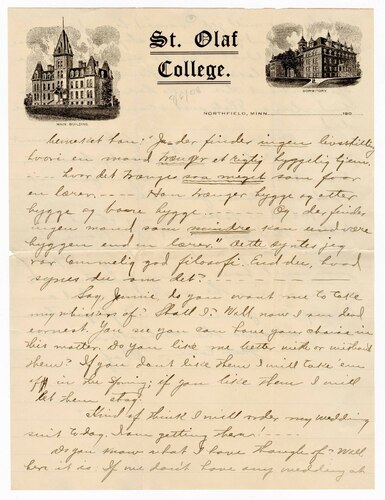 St. Olaf
College.
MAIN BUILDING
DORMITORY
NORTHFIELD, MINN. 190
ham." Ja der finder ingen livsstilling
hvori en mand trænger et rigtig hyggelig hjem
hvor det trænges saa meget som for
en lærer. — Han trænger hygge og atter
hygge og bare hygge — Og der finder
ingen mand som mindre kan end være
hyggen end en lærer." Dette synes jeg
var temmelig god filosofi. End du, hvad
synes du om det?
Say, Jennie, do you want me to take
my whiskers off? Shall I? Well, now I am dead
earnest. You see you can have your choice in
this matter. Do you like me better with or without
them? If you dont like them I will take 'em
off in the Spring; if you like them I will
let them stay.
Kind of think I will order my wedding
suit to day. I am getting them! - - -
Do you know what I have thought of? Well
here it is. If we don't have any wedding at